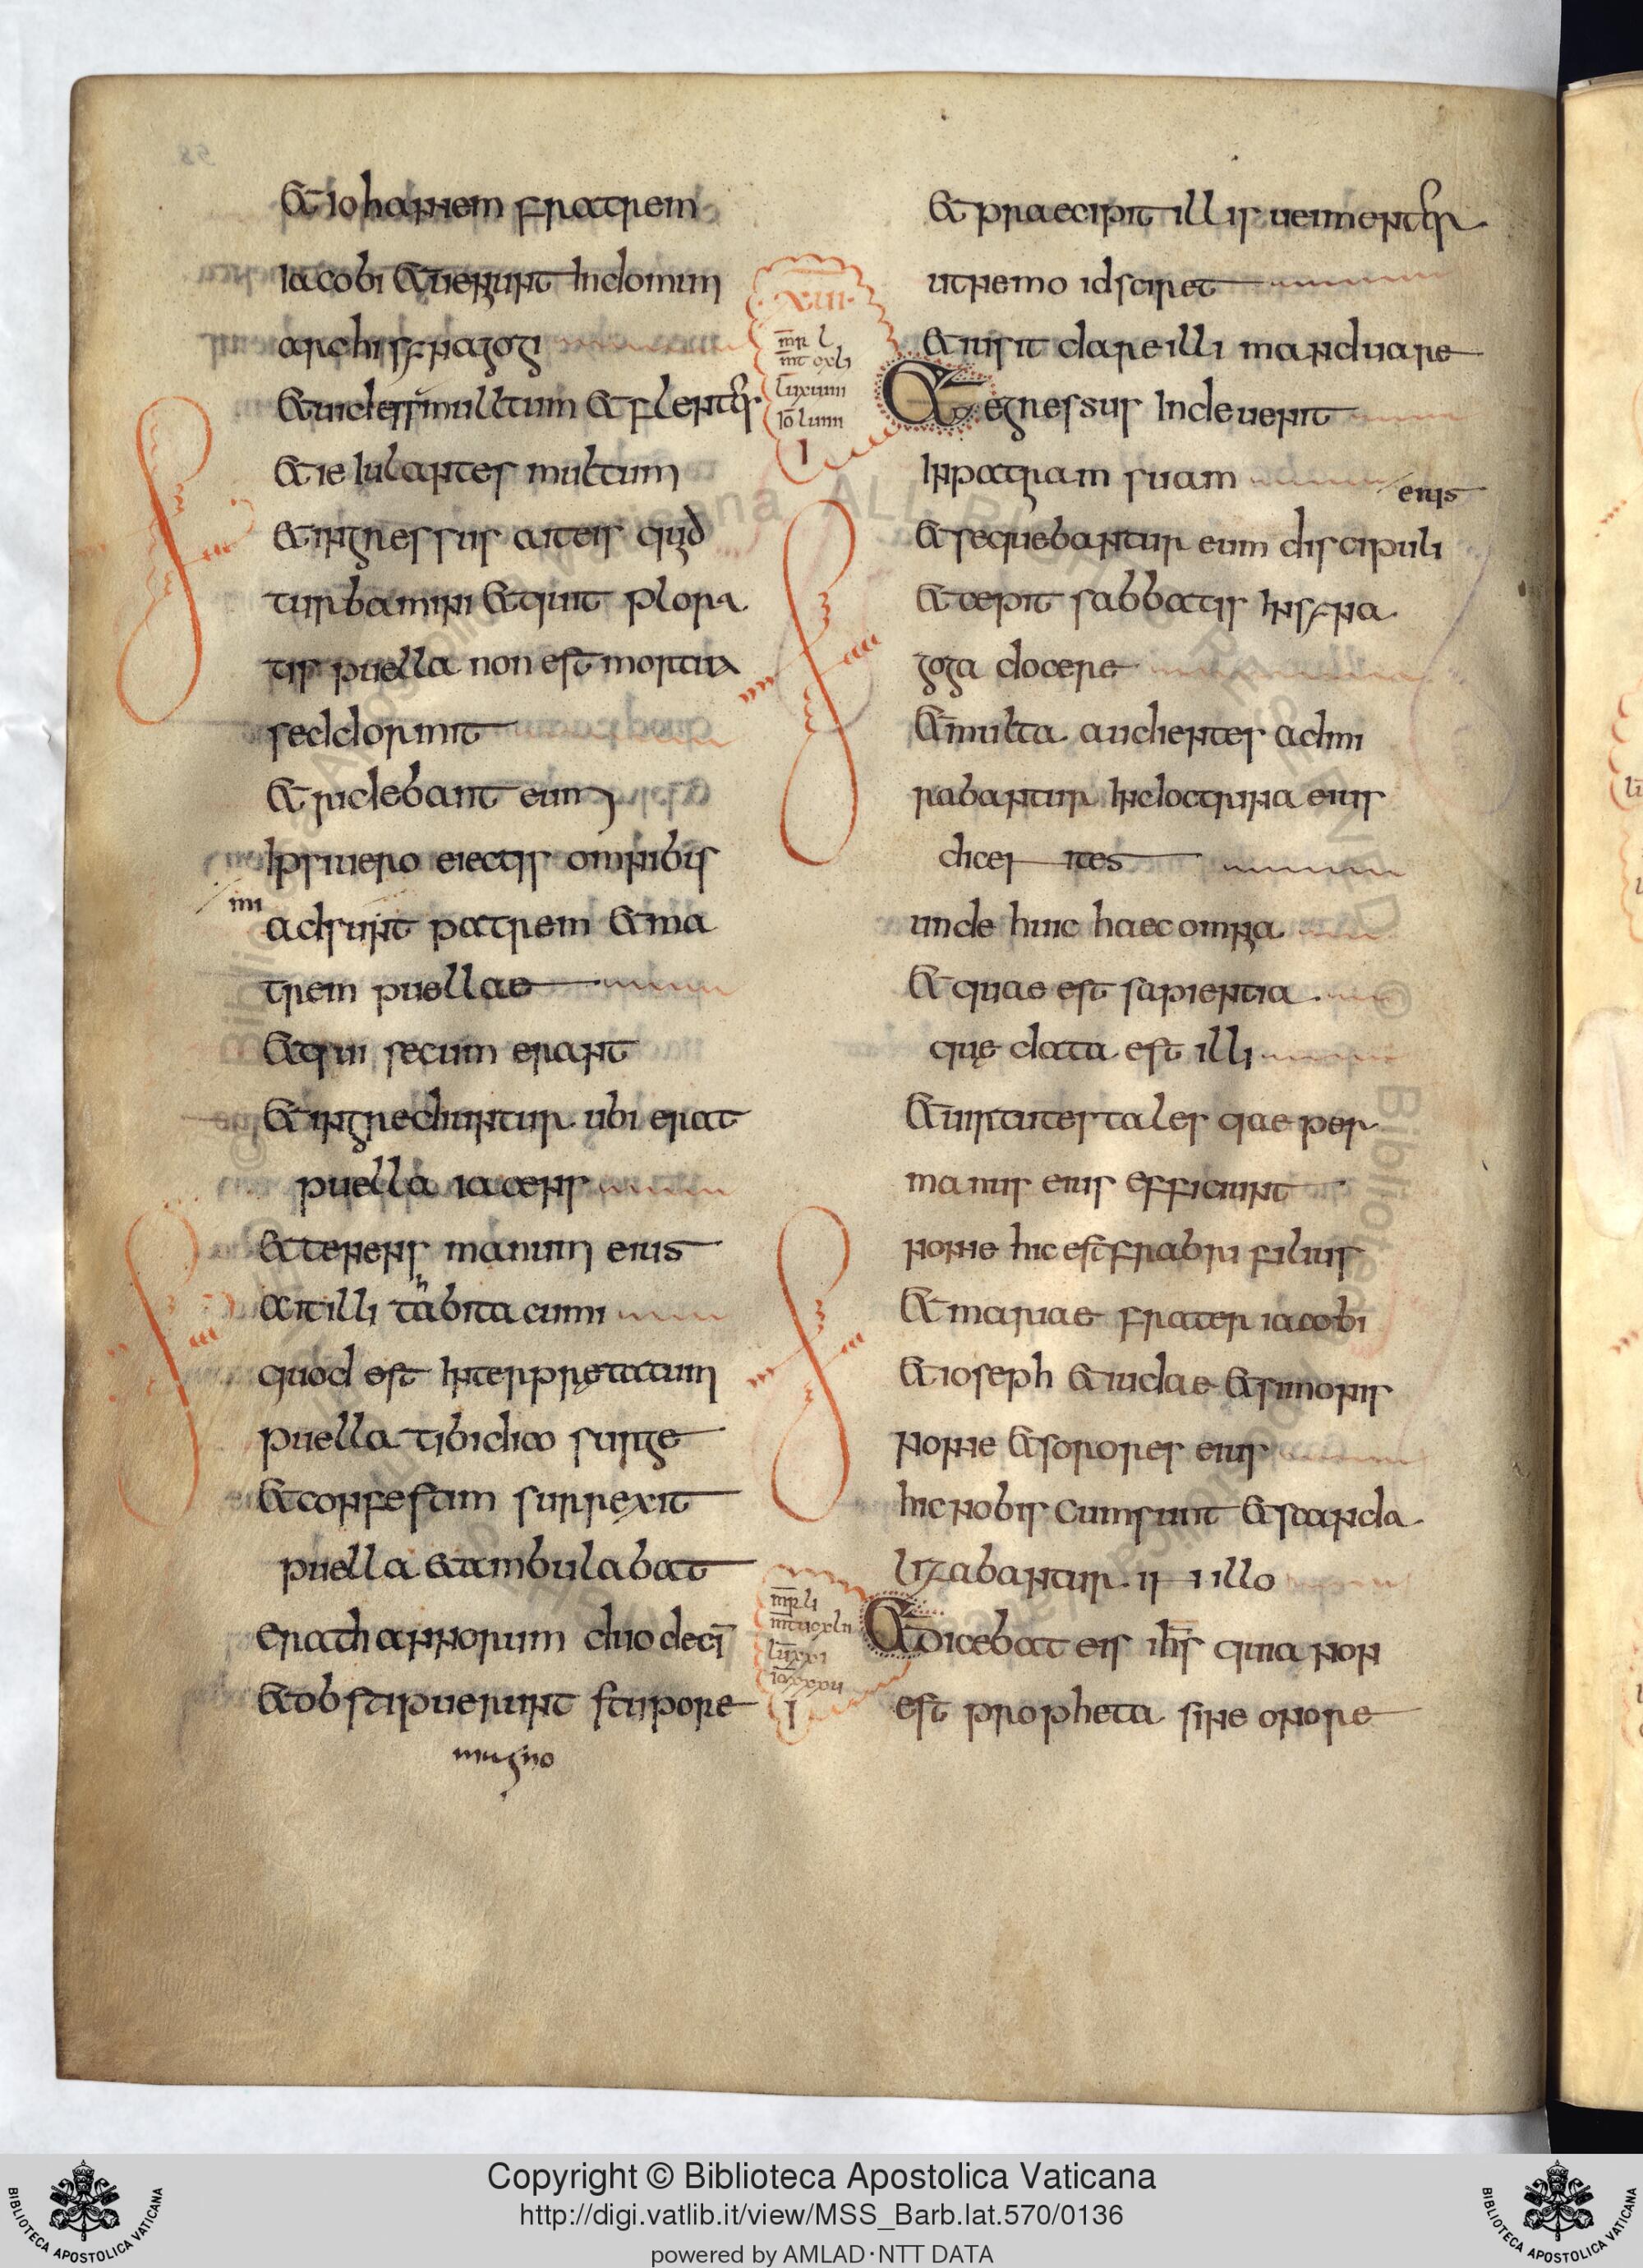 & iohannem fratrem
iacobi & uenerunt in domum
archisynagog
& uidens multum & flentes
& ieiulantes multum
& ingressus ait eis quid
turbamini & quit plora
tis puella non est mortua
sed dormit
& ridebant eum
ipsi uero eiectis omnibus
imi
adsunt patrem & ma
trem puellae
& qui secum erant
& ingrediuntur ubi erat
puella iacens
& tenens manum eius
ait illi tabita cumi
h
quod est interpretatum
puella tibi dico surge
& confestim surrexit
puella & ambulabat
erat h annorum duodecī
& obstipuerunt stupore
magno
xiii
m̄r l
m̄t cxli
lū xuiiii
iō luiiii
I
m̄r li
m̄t cxlii
lū xxi
iō xxxu
I
& praecipit illis ueimenter
ut nemo id sciret
& iusit dare illi manduare
& egressus inde uenit
in patriam suam
eius
& sequebantur eum discipuli
& cepit sabbatis in syna
goga docere
& multa audientes admi
rabantur in doctrina eius
dicentes
unde huic haec omnia
& quae est sapientia
quę data est illi
& uirtutes tales quae per
manus eius efficiunt
nonne hic est frabri filius
& mariae frater iacobi
& ioseph & iudae & simonis
nonne & sorores eius
hic nobis cum sunt & scanda
lizabantur in illo
& dicebat eis ihs̄ quia non
est propheta sine onore
Copyright © Biblioteca Apostolica Vaticana
http://digi.vatlib.it/view/MSS_Barb.lat.570/0136
powered by AMLAD·NTT DATA
BIBLIOTECA APOSTOLICA VATICANA
BIBLIOTECA APOSTOLICA VATICANA